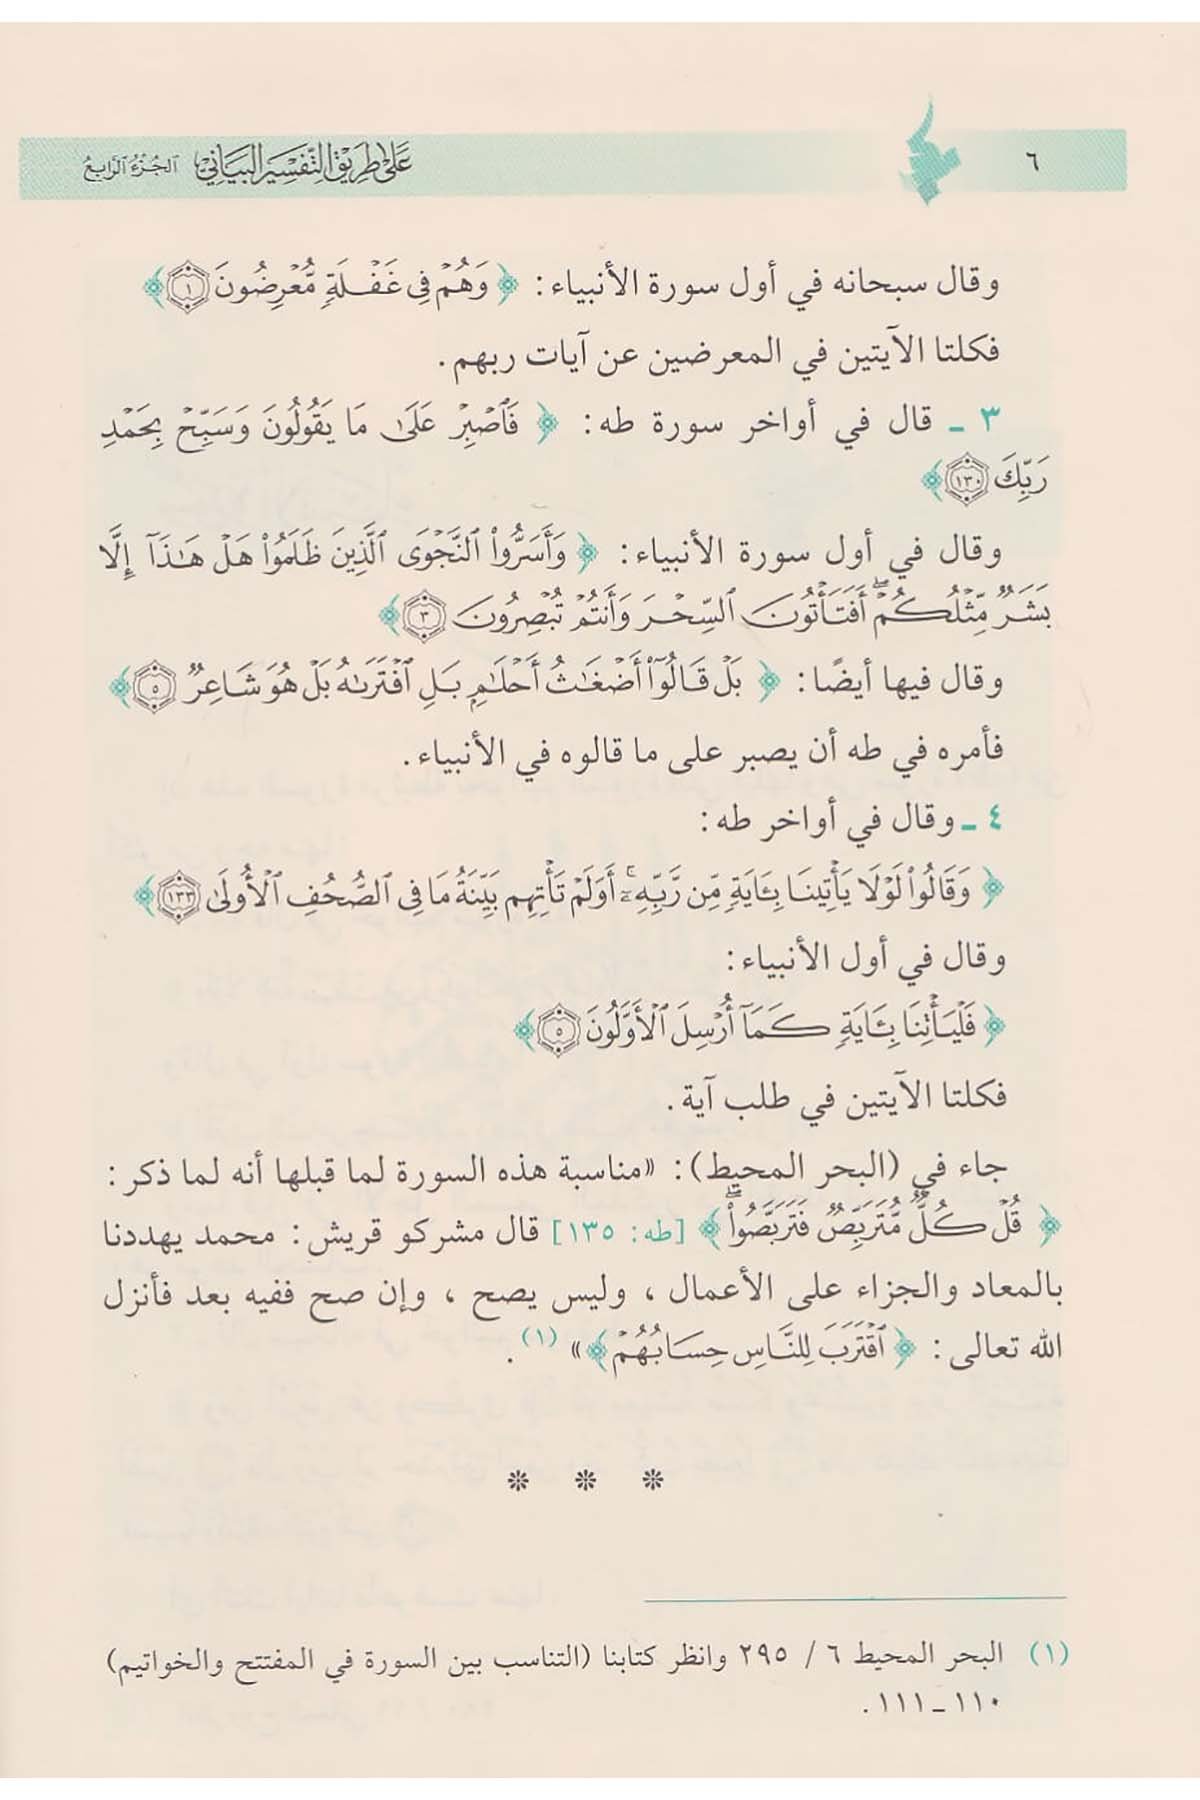 ٦
على طريق التفسير البياني الجزء الرابع
وقال سبحانه في أول سورة الأنبياء: ﴿وَهُمْ فِي غَفْلَةٍ مُّعْرِضُونَ ۝١﴾
فكلتا الآيتين في المعرضين عن آيات ربهم.
٣ ـ قال في أواخر سورة طه: ﴿فَٱصْبِرْ عَلَىٰ مَا يَقُولُونَ وَسَبِّحْ بِحَمْدِ
رَبِّكَ ۝١٣٠﴾
وقال في أول سورة الأنبياء: ﴿وَأَسَرُّوا۟ ٱلنَّجْوَى ٱلَّذِينَ ظَلَمُوا۟ هَلْ هَـٰذَآ إِلَّا
بَشَرٌ مِّثْلُكُمْ ۖ أَفَتَأْتُونَ ٱلسِّحْرَ وَأَنتُمْ تُبْصِرُونَ ۝٣﴾
وقال فيها أيضًا: ﴿بَلْ قَالُوٓا۟ أَضْغَـٰثُ أَحْلَـٰمٍ بَلِ ٱفْتَرَىٰهُ بَلْ هُوَ شَاعِرٌ ۝٥﴾
فأمره في طه أن يصبر على ما قالوه في الأنبياء.
٤ ـ وقال في أواخر طه:
﴿وَقَالُوا۟ لَوْلَا يَأْتِينَا بِـَٔايَةٍ مِّن رَّبِّهِۦٓ ۚ أَوَلَمْ تَأْتِهِم بَيِّنَةُ مَا فِي ٱلصُّحُفِ ٱلْأُولَىٰ ۝١٣٣﴾
وقال في أول الأنبياء:
﴿فَلْيَأْتِنَا بِـَٔايَةٍ كَمَآ أُرْسِلَ ٱلْأَوَّلُونَ ۝٥﴾
فكلتا الآيتين في طلب آية.
جاء في (البحر المحيط): «مناسبة هذه السورة لما قبلها أنه لما ذكر:
﴿قُلْ كُلٌّ مُّتَرَبِّصٌ فَتَرَبَّصُوا۟ ۖ﴾ [طه: ١٣٥] قال مشركو قريش: محمد يهددنا
بالمعاد والجزاء على الأعمال، وليس يصح، وإن صح ففيه بعد فأنزل
الله تعالى: ﴿ٱقْتَرَبَ لِلنَّاسِ حِسَابُهُمْ﴾» (١).
* * *
(١) البحر المحيط ٦ / ٢٩٥ وانظر كتابنا (التناسب بين السورة في المفتتح والخواتيم)
١١٠ ـ ١١١.